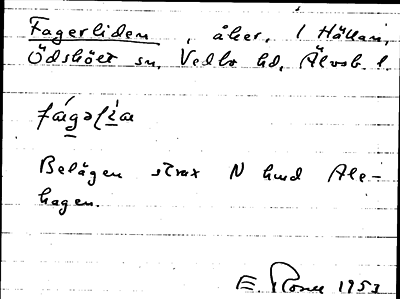 Fagerliden, åker, 1 Hällan,
Ödskölt sn, Vedbo hd, Älvsb. l.
Belägen strax N hmd Ale-
hagen.
E. Rosell 1953